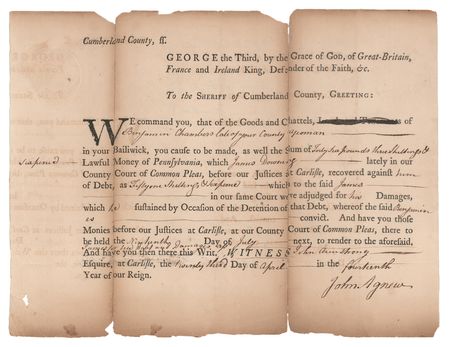 Cumberland County, ss.
GEORGE the Third, by the Grace of GOD, of Great-Britain,
France and Ireland King, Defender of the Faith, &c.
To the SHERIFF of Cumberland County, GREETING:
WE command you, that of the Goods and Chattels, Lands and Tenements of
Benjamin Chambers late of your County yeoman
in your Bailiwick, you cause to be made, as well the Sum of Forty six pounds three shillings &
sixpence Lawful Money of Pennsylvania, which James Downey lately in our
County Court of Common Pleas, before our Justices at Carlisle, recovered against him
of Debt, as Fifty nine Shillings & sixpence which to the said James
in our same Court were adjudged for his Damages,
which he sustained by Occasion of the Detention of that Debt, whereof the said Benjamin
is convict. And have you those
Monies before our Justices at Carlisle, at our County Court of Common Pleas, there to
be held the Day of July next, to render to the aforesaid,
James his Debt and Damages
And have you then there this Writ. WITNESS John Armstrong
Esquire, at Carlisle, the twenty third Day of April in the fourteenth
Year of our Reign.
John Agnew